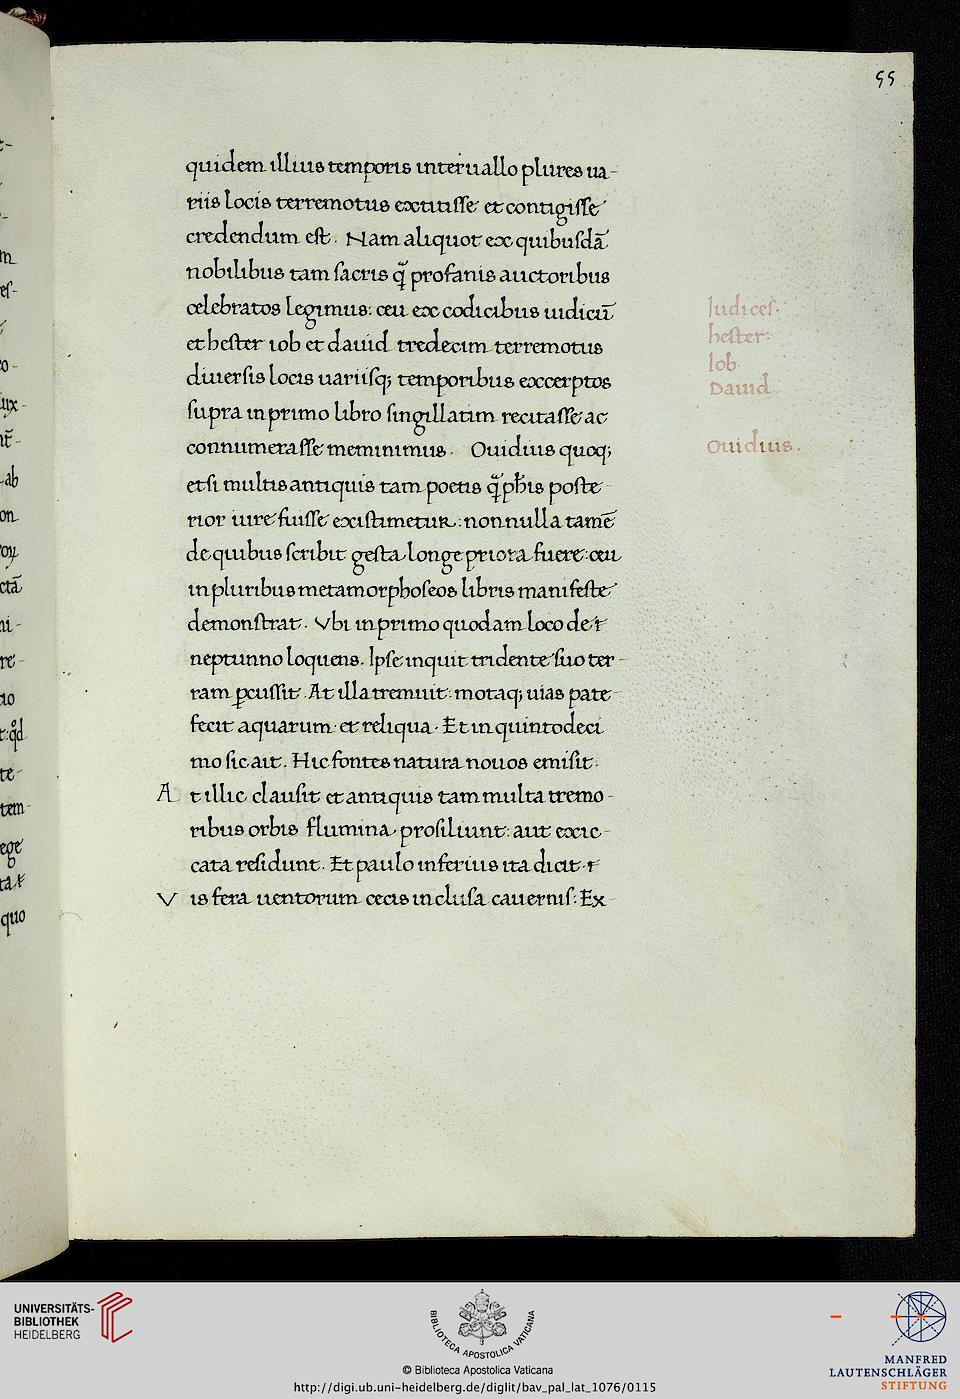 55
quidem illius temporis interuallo plures ua-
riis locis terremotus extitisse et contigisse
credendum est. Nam aliquot ex quibusdā
nobilibus tam sacris q̄ profanis auctoribus
celebratos legimus: ceu ex codicibus iudicū
et hester iob et dauid tredecim terremotus
diuersis locis uariisq; temporibus excerptos
supra in primo libro singillatim recitasse ac
connumerasse meminimus. Ouidius quoq;
etsi multis antiquis tam poetis q̄ ph̄is poste-
rior iure fuisse existimetur: nonnulla tamē
de quibus scribit gesta longe priora fuere: ceu
in pluribus metamorphoseos libris manifeste
demonstrat. Vbi in primo quodam loco de
neptunno loquens. Ipse inquit tridente suo ter-
ram ꝑcussit. At illa tremuit: motaq; uias pate-
fecit aquarum et reliqua. Et in quintodeci
mo sic ait. Hic fontes natura nouos emisit.
At illic clausit et antiquis tam multa tremo-
ribus orbis flumina prosiliunt: aut exic-
cata residunt. Et paulo inferius ita dicit.
Vis fera uentorum cecis inclusa cauernis: Ex-
Iudices.
hester.
Iob.
Dauid.
Ouidius.
UNIVERSITÄTS-
BIBLIOTHEK
HEIDELBERG
BIBLIOTECA APOSTOLICA VATICANA
© Biblioteca Apostolica Vaticana
http://digi.ub.uni-heidelberg.de/diglit/bav_pal_lat_1076/0115
MANFRED
LAUTENSCHLÄGER
STIFTUNG